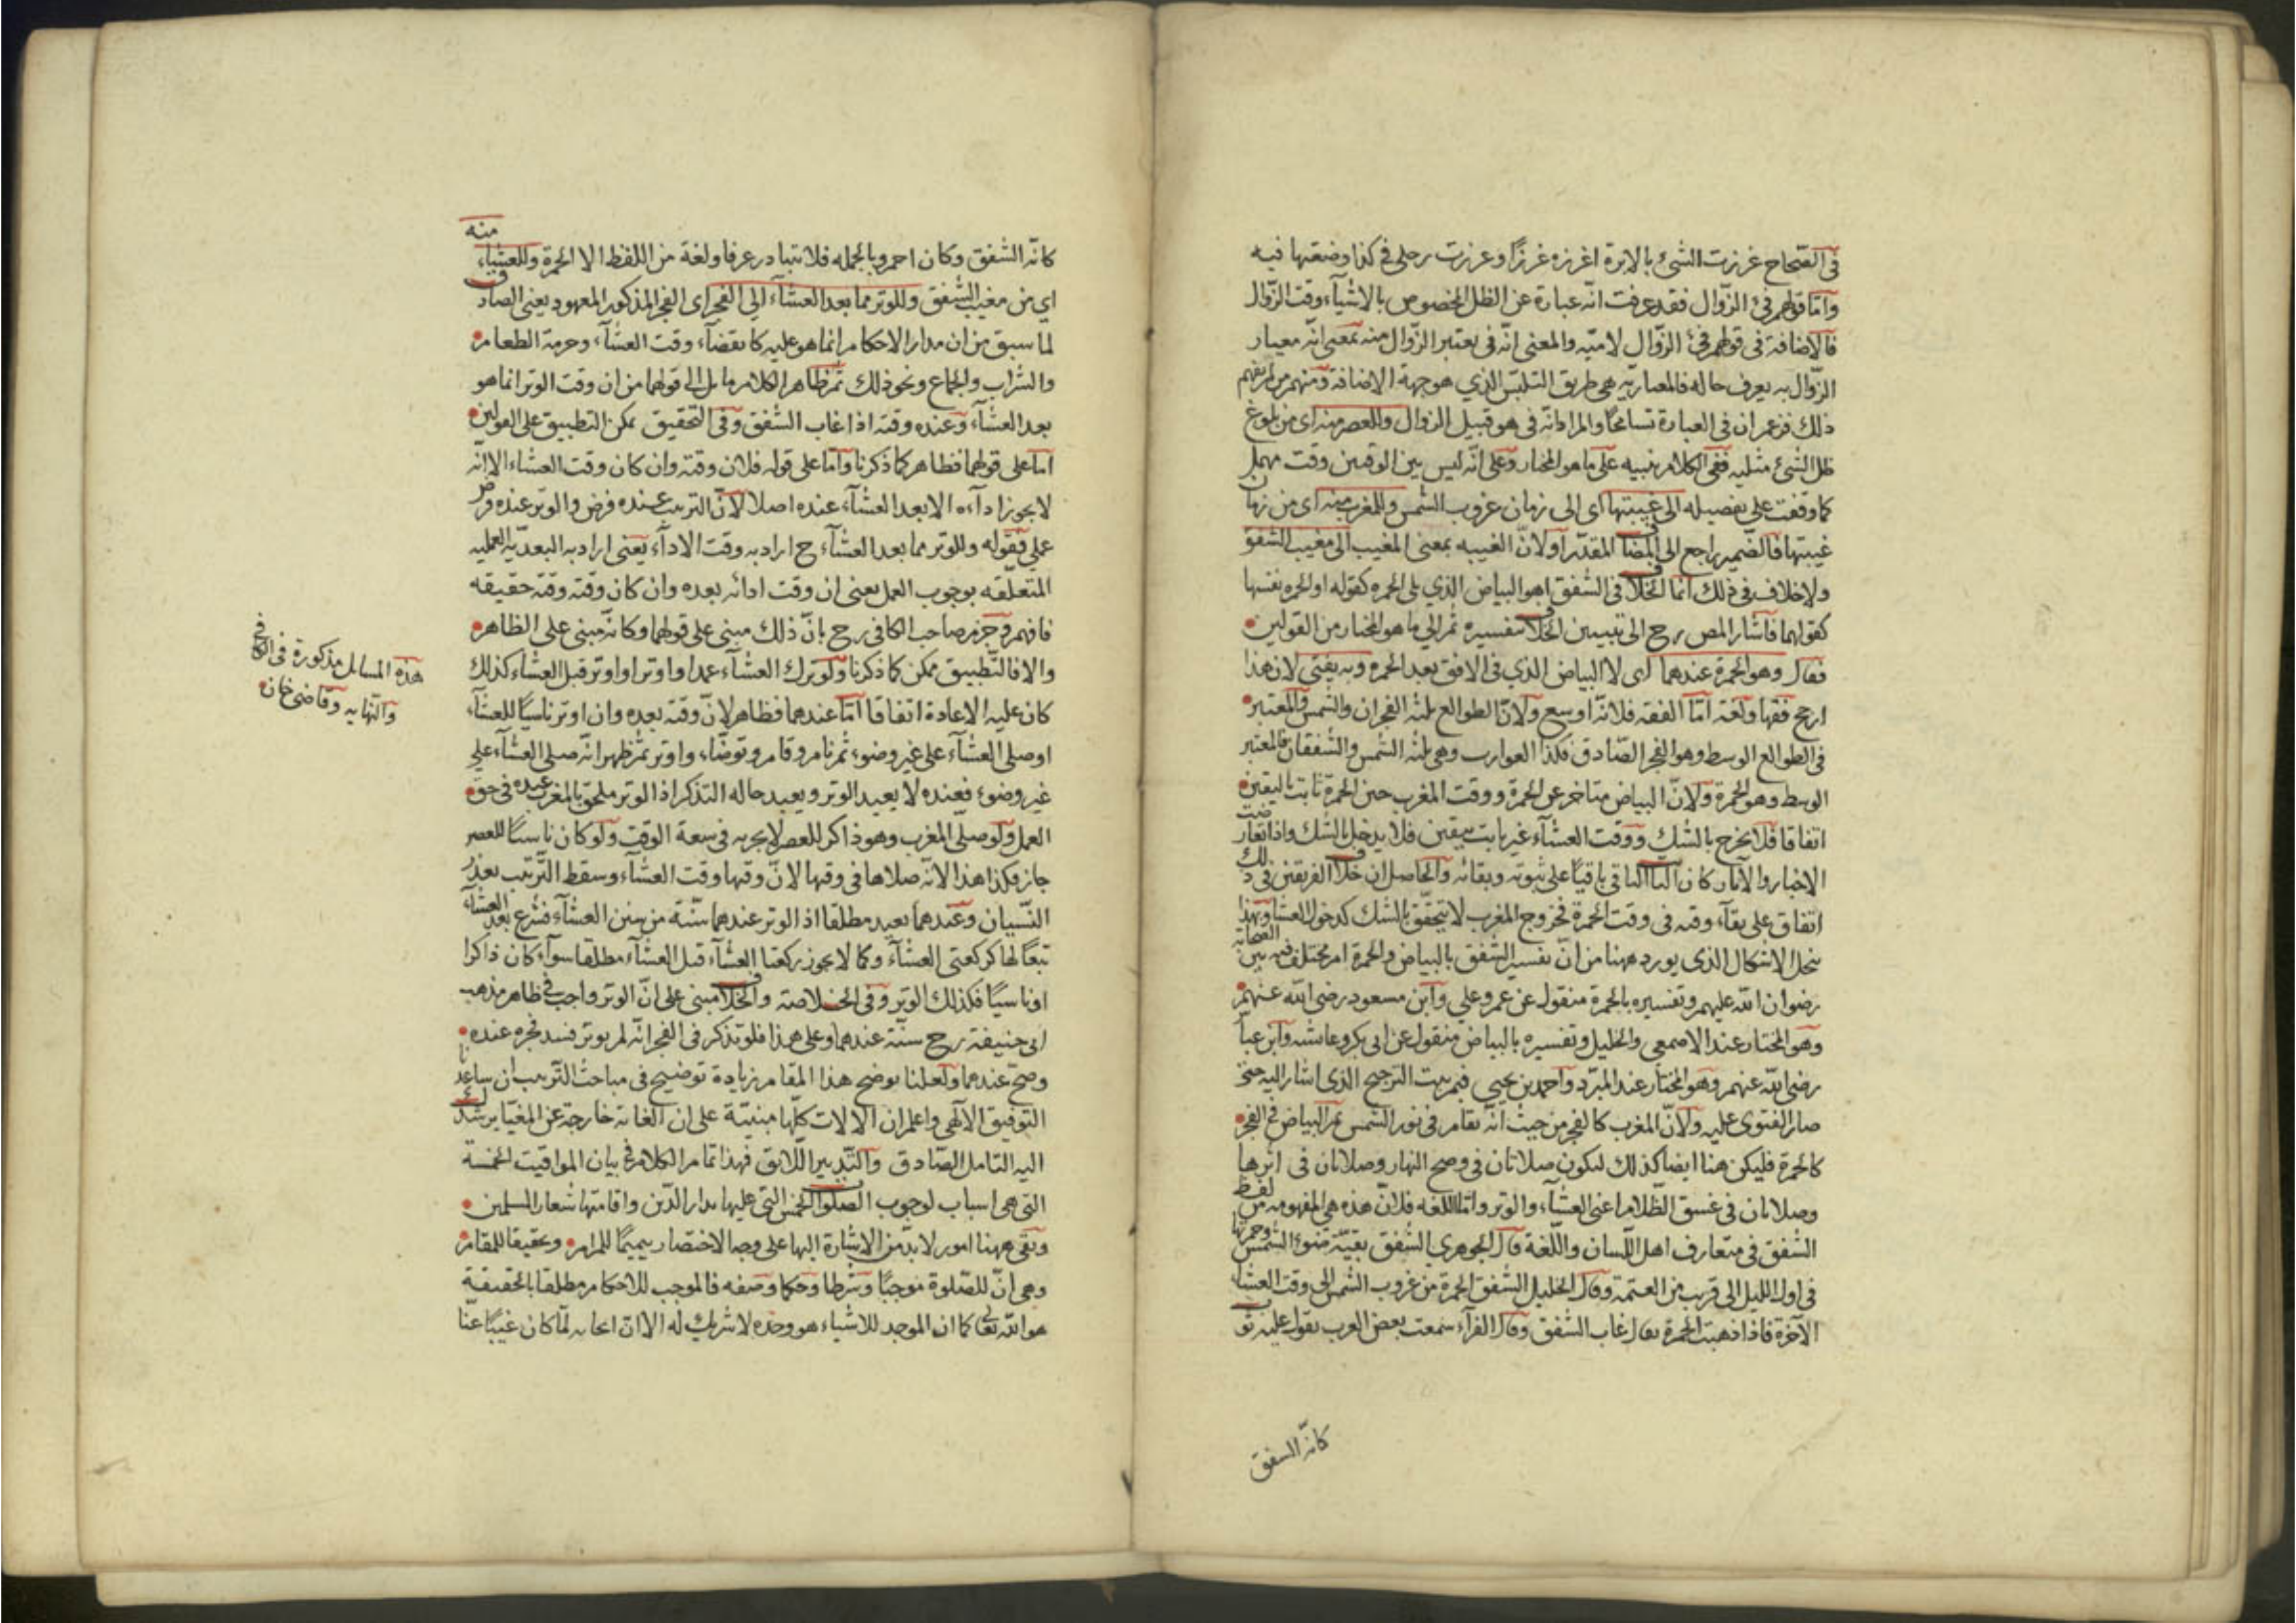 في الصحاح غرزت الشئ بالابرة اغرزه غرزًا وغرزت رحلي في كذا وضعتها فيه
وامّا قولهم فئ الزّوال فقد عرفت انّه عبارة عن الظل المخصوص بالاشيآء وقت الزّوال
فالاضافة في قولهم فئ الزّوال لاميّه والمعنى انّه فئ يعتبر الزّوال منه بمعنى انّه معيار
الزّوال به يعرف حاله فالمعياريّه هي طريق التلبّس الذي هو جهة الاضافة ومنهم من لم يفهم
ذلك فزعم ان في العبارة تسامحًا والمراد انّه فئ هو قبيل الزوال وللعصر منه اى من بلوغ
ظل الشئ مثليه ففي الكلام تنبيه على ما هو المختار وعلى انّه ليس بين الوقتين وقت مهمل
كما وقفت على تفصيله الى غيبتها اى الى زمان غروب الشمس وللمغرب منه اى من زمان
غيبتها فالضمير راجع الى المضاف المقدّر اولانّ الغيبه بمعنى المغيب الى مغيب الشفق
ولاخلاف في ذلك انما الخلاف في الشفق اهو البياض الذي يلي الحمره كقوله او الحمره نفسها
كقولهما فاشار المص رح الى تبيين الخلاف بتفسيره ثم الى ما هو المختار من القولين
فقال وهو الحمرة عندهما اى لا البياض الذي في الافق بعد الحمره وبه يفتى لان هذا
ارجح فقها ولغة امّا الفقه فلانّه اوسع ولانّ الطوالع ثلثه الفجران والشمس والمعتبر
في الطوالع الوسط وهو الفجر الصّادق فكذا الغوارب وهي ثلثه الشمس والشفقان فالمعتبر
الوسط وهو الحمرة ولانّ البياض متاخر عن الحمرة ووقت المغرب حين الحمرة ثابت باليقين
اتفاقا فلا يخرج بالشك ووقت العشآء غير ثابت بيقين فلا يدخل بالشك واذا تعارضت
الاخبار والآثار كان الباقي باقيًا على ثبوته وبقائه والحاصل ان خلاف الفريقين في ذلك
اتفاق على بقآء وقته في وقت الحمرة فخروج المغرب لا يتحقق بالشك كدخول العشا وبهذا
ينحل الاشكال الذي يورد ههنا من انّ تفسير الشفق بالبياض والحمرة امر مختلف فيه بين الصحابة
رضوان الله عليهم وتفسيره بالحمرة منقول عن عمر وعلي وابن مسعود رضي الله عنهم
وهو المختار عند الاصمعي والخليل وتفسيره بالبياض منقول عن ابي بكر وعائشه وابن عباس
رضي الله عنهم وهو المختار عند المبرّد واحمد بن يحيى فيم يثبت الترجيح الذي اشار اليه حتى
صار الفتوى عليه ولانّ المغرب كالفجر من حيث انّه تقام في نور الشمس ثم البياض في الفجر
كالحمرة فليكن هنا ايضا كذلك ليكون صلاتان في وضح النهار وصلاتان في اثرها
وصلاتان في غسق الظّلام اعني العشآء والوتر وامّا اللغه فلانّ هذه هي المفهومه من لفظ
الشفق في متعارف اهل اللّسان واللّغة قال الجوهري الشفق بقيّة ضوء الشمس وحمرتها
في اول الليل الى قريب من العتمة وقال الخليل الشفق الحمرة من غروب الشمس الى وقت العشاء
الآخرة فاذا ذهبت الحمرة يقال غاب الشفق وقال الفرّآء سمعت بعض العرب يقول عليه ثوب
كانّه الشفق
كانّه الشفق وكان احمر وبالجمله فلا يتبادر عرفا ولغة من اللفظ الا الحمرة وللعشاء منه
اي من مغيب الشفق وللوتر مما بعد العشآء الى الفجر اى الفجر المذكور المعهود يعني الصادق
لما سبق من ان مدار الاحكام انما هو عليه كانقضآء وقت العشآء وحرمة الطعام
والشراب والجماع ونحو ذلك ثم ظاهر الكلام مايل الى قولهما من ان وقت الوتر انما هو
بعد العشآء وعنده وقته اذا غاب الشفق وفي التحقيق يمكن التطبيق على القولين
امّا على قولهما فظاهر كما ذكرنا وامّا على قوله فلان وقته وان كان وقت العشاء الا انّه
لا يجوز ادآءه الا بعد العشآء عنده اصلا لانّ الترتيب عنده فرض والوتر عنده فرض
عملي فقوله وللوتر مما بعد العشآء ح اراد به وقت الادآء يعني اراد به البعديّه العمليه
المتعلّقه بوجوب العمل يعني ان وقت ادائه بعده وان كان وقته وقته حقيقه
فافهم وجزم صاحب الكافي رح بانّ ذلك مبني على قولهما وكانّه مبني على الظاهر
والا فالتّطبيق ممكن كما ذكرنا ولو ترك العشآء عمدا واوتر او اوتر قبل العشاء كذلك
كان عليه الاعادة اتفاقا امّا عندهما فظاهر لانّ وقته بعده وان اوتر ناسيًا للعشآء
او صلى العشآء على غير وضوء ثم نام وقام وتوضّاء واوتر ثم ظهر انّه صلى العشآء على
غير وضوء فعنده لا يعيد الوتر ويعيد حاله التذكر اذ الوتر ملحق بالمغرب عنده في حق
العمل ولو صلّى المغرب وهو ذاكر للعصر لا يجزيه في سعة الوقت ولو كان ناسيًا للعصر
جاز فكذا هذا لانّه صلاها في وقتها لانّ وقتها وقت العشآء وسقط التّرتيب بعذر
النّسيان وعندهما يعيد مطلقا اذ الوتر عندهما سنّة من سنن العشآء فشرع بعد العشآء
تبعًا لها كركعتي العشآء وكما لا يجوز ركعتا العشآء قبل العشآء مطلقا سوآء كان ذاكرا
او ناسيًا فكذلك الوتر وفي الخلاصة والخلاف مبني على انّ الوتر واجب في ظاهر مذهب
ابي حنيفة رح سنّة عندهما وعلى هذا فلو تذكر في الفجر انّه لم يوتر فسد فجره عنده
وصحّ عندهما ولعلنا نوضح هذا المقام زيادة توضيح في مباحث الترتيب ان ساعدنا
التوفيق الالٓهي واعلم ان الالات كلّها مبنيّة على ان الغاية خارجة عن المغيّا يرشدك
اليه التامل الصّادق والتّدبير اللّائق فهذا تمام الكلام في بيان المواقيت الخمسة
التي هي اسباب لوجوب الصلوات الخمس التي عليها مدار الدّين واقامتها شعار المسلمين
وبقي ههنا امور لا بدّ من الاشارة اليها على وجه الاختصار تتميمًا للمرام وتحقيقا للمقام
وهي انّ للصّلوة موجبًا وشرطا وحكما وصفه فالموجب للاحكام مطلقا بالحقيقة
هو الله تعالى كما ان الموجد للاشياء هو وحده لا شريك له الا انّ ايجابه لمّا كان غيبًا عنّا
هذه المسايل مذكورة في الكافي
والنهايه وقاضي خان